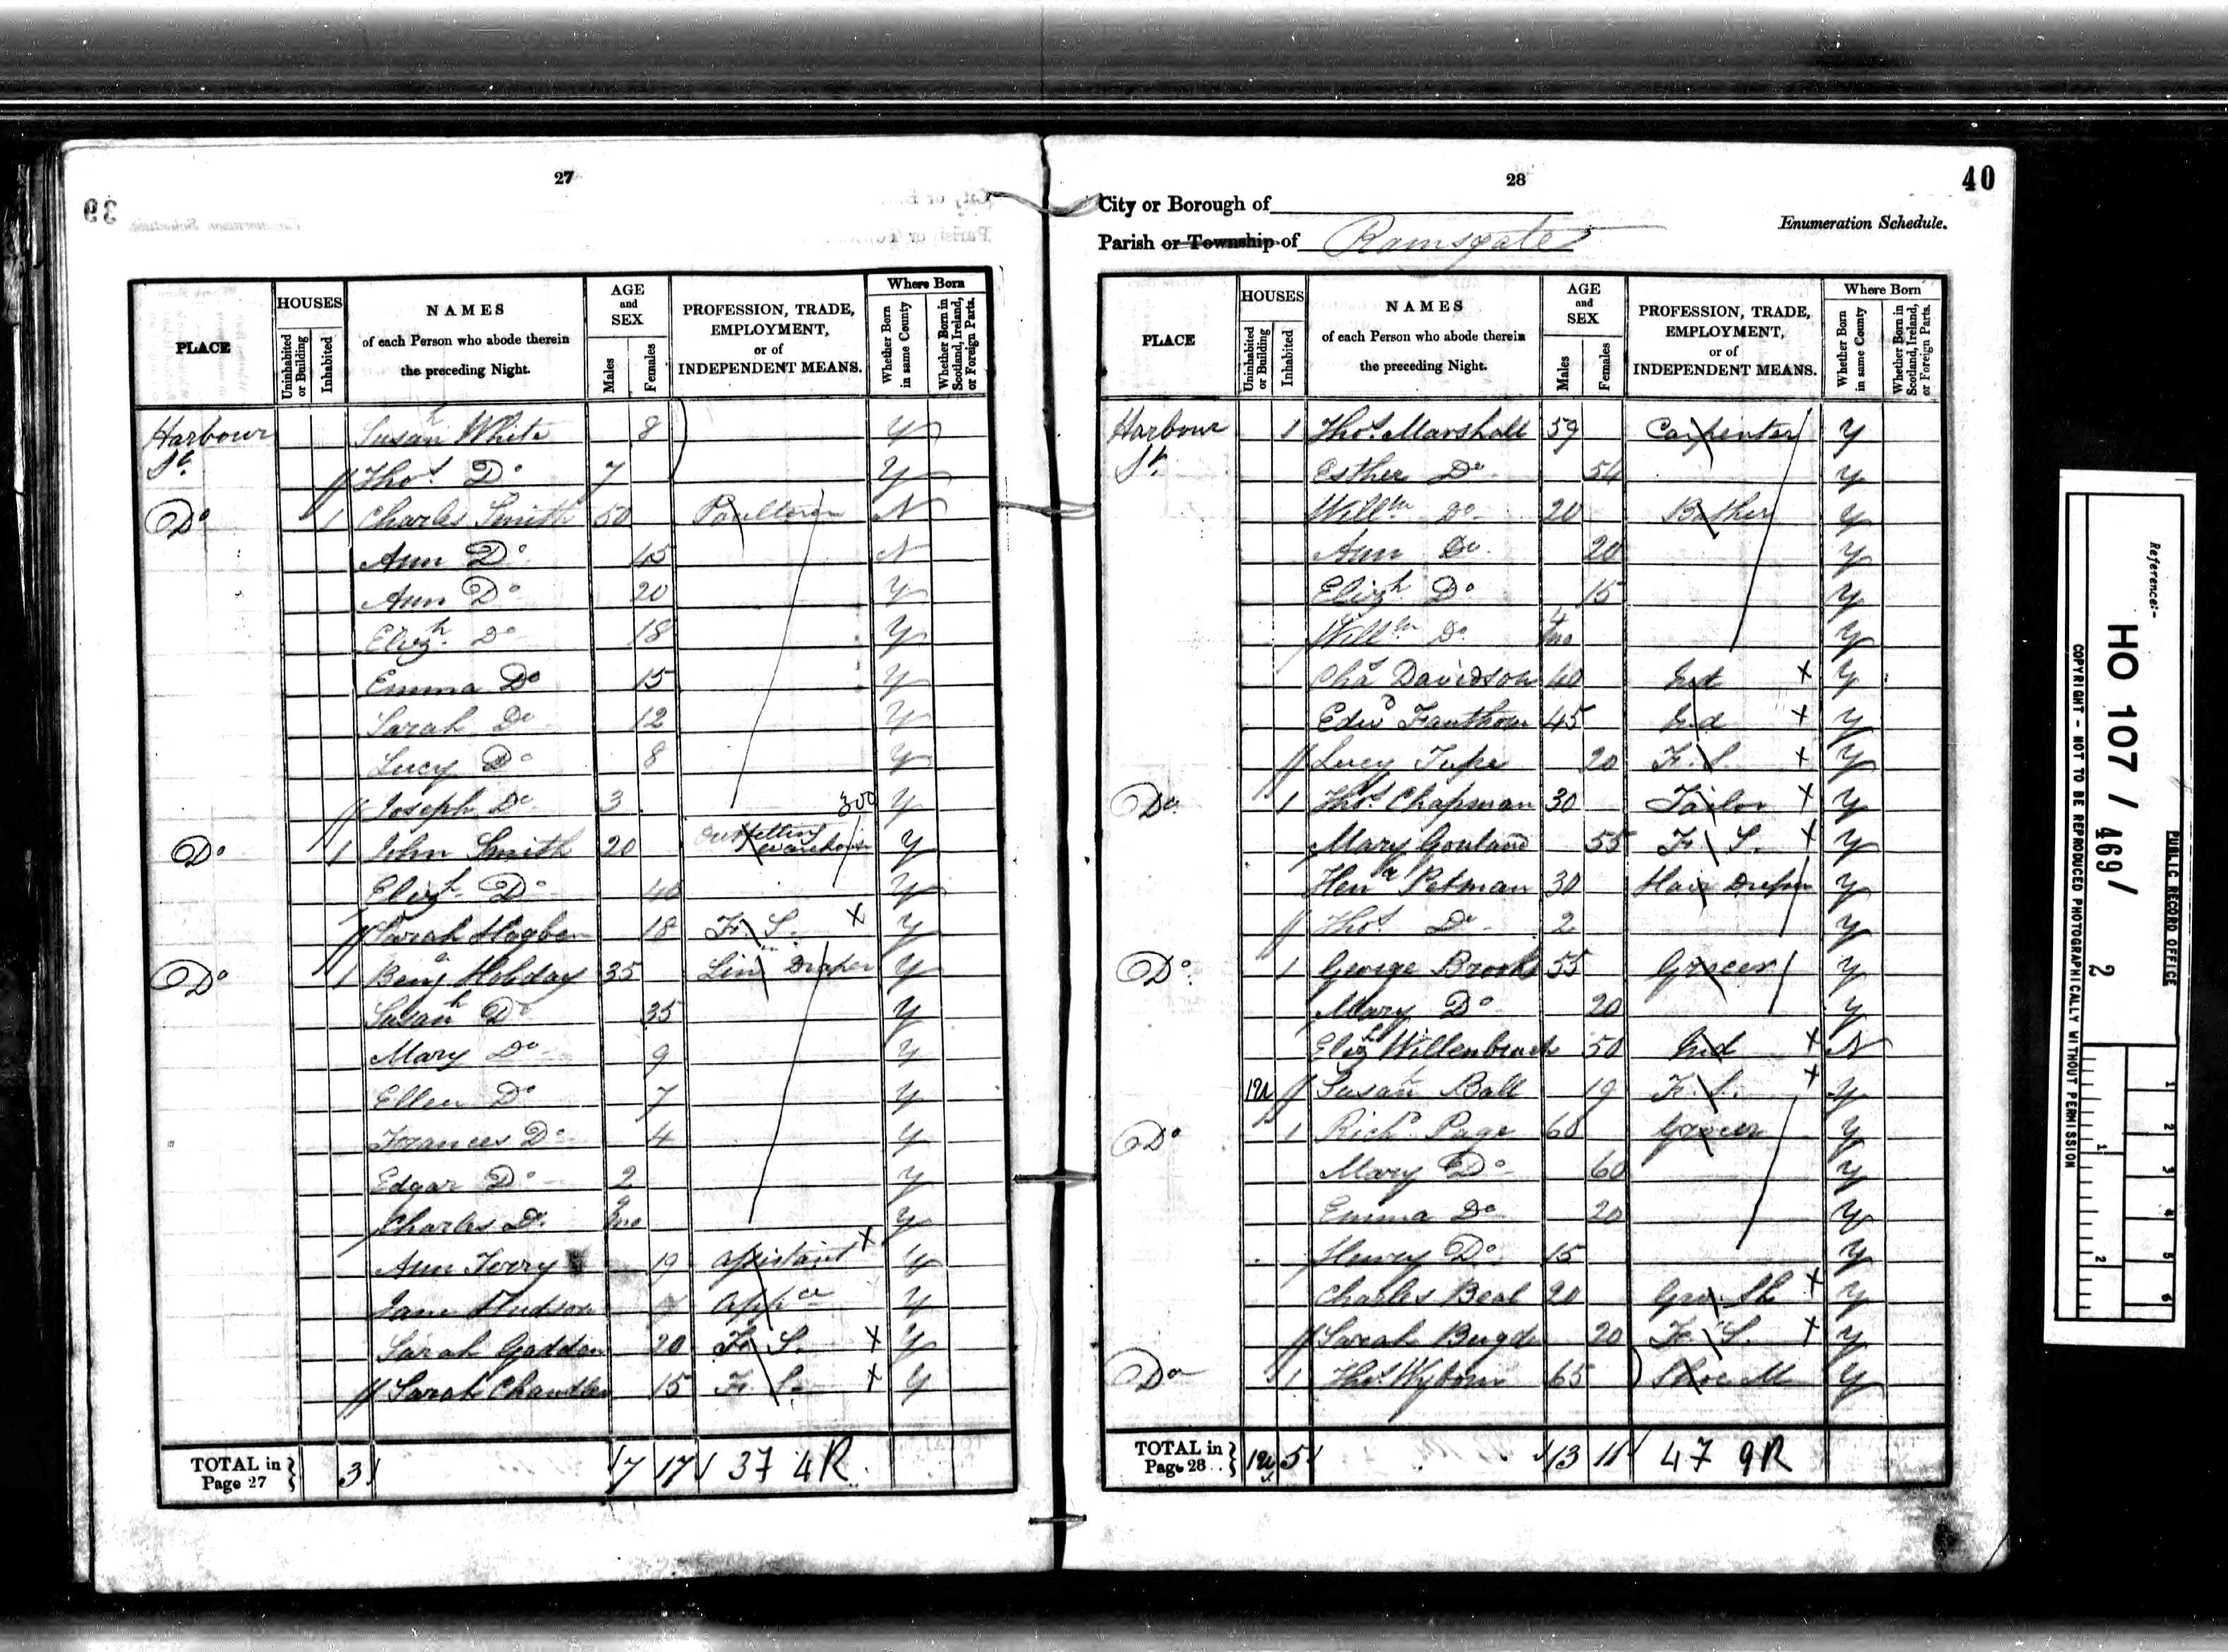 27
39
HOUSES
NAMES
AGE
and
SEX
PROFESSION, TRADE,
EMPLOYMENT,
or of
INDEPENDENT MEANS.
Where Born
PLACE
Uninhabited
or Building
Inhabited
of each Person who abode therein
the preceding Night.
Males
Females
Whether Born
in same County
Whether Born in
Scotland, Ireland,
or Foreign Parts.
Harbour Susanh White 8 Y
St. Thos Do 7 Y
Do 1 Charles Smith 50 Poulterer N
Ann Do 45 N
Ann Do 20 Y
Elizh Do 18 Y
Emma Do 15 Y
Sarah Do 12 Y
Lucy Do 8 Y
Joseph Do 3 300 Y
Do 1 John Smith 20 Outfitting warehouse Y
Elizh Do 40 Y
Sarah Hogben 18 F. S. X Y
Do 1 Benj Hobday 35 Lin Draper Y
Susanh Do 35 Y
Mary Do 9 Y
Ellen Do 7 Y
Frances Do 4 Y
Edgar Do 2 Y
Charles Do mo Y
Ann Ivory 19 Assistant X Y
Jane Hudson Appce Y
Sarah Goddon 20 F. S. X Y
Sarah Chandler 15 F. S. X Y
TOTAL in
Page 27 3 7 17 37 4R
28
40
City or Borough of
Enumeration Schedule.
Parish or Township of Ramsgate
HOUSES
NAMES
AGE
and
SEX
PROFESSION, TRADE,
EMPLOYMENT,
or of
INDEPENDENT MEANS.
Where Born
PLACE
Uninhabited
or Building
Inhabited
of each Person who abode therein
the preceding Night.
Males
Females
Whether Born
in same County
Whether Born in
Scotland, Ireland,
or Foreign Parts.
Harbour 1 Thos Marshall 59 Carpenter Y
St. Esther Do 54 Y
Willm Do 20 Bather Y
Ann Do 20 Y
Elizh Do 15 Y
Willm Do 4 mo Y
Chas Davidson 40 Ind X Y
Edwd Fanthom 45 Ind X Y
Lucy Tupe 20 F. S. X Y
Do 1 Thos Chapman 30 Tailor X Y
Mary Gouland 55 F. S. X Y
Henr Petman 30 Hair Dresser Y
Thos Do 2 Y
Do 1 George Brooks 55 Grocer Y
Mary Do 20 Y
Elizh 50 Ind X N
1U Susanh Ball 19 F. S. X Y
Do 1 Richd Page 60 Grocer Y
Mary Do 60 Y
Emma Do 20 Y
Henry Do 15 Y
Charles Beal 20 Gro. Sh X Y
Sarah 20 F. S. X Y
Do 1 Thos Wyborn 65 Shoe M Y
TOTAL in
Page 28 1U 5 13 11 47 9R
Reference:-
HO 107 / 469 / 2
PUBLIC RECORD OFFICE
COPYRIGHT - NOT TO BE REPRODUCED PHOTOGRAPHICALLY WITHOUT PERMISSION
1 2 3 4 5 6
1 2